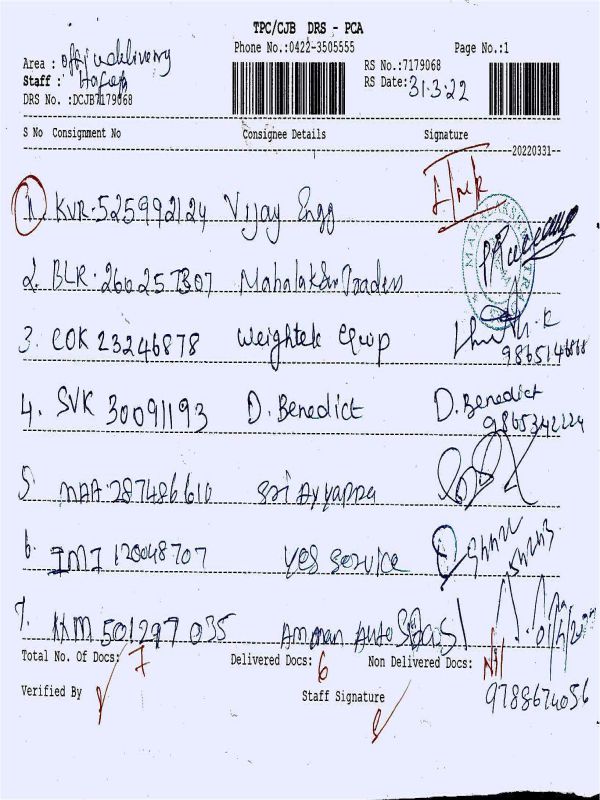 TPC/CJB DRS - PCA
Phone No.:0422-3505555 Page No.:1
Area : delivery
Staff :
RS No.:7179068
DRS No. :DCJB7179068
RS Date: 31.3.22
S No Consignment No Consignee Details Signature
20220331
1. KVR-525992124 Vijay Engg
2. BLR-260257307 Traders
3. COK 23246878 Weightek Equp
9865146868
4. SVK 30091193 D. Benedict D. Benedict
9865342224
5. MAA-287486610 Sri Ayyappa
6. IMJ 120048707 Yes Service
7. KKM 501297035 Amman Auto
Total No. Of Docs: 7 Delivered Docs: 6 Non Delivered Docs: Nil
Verified By Staff Signature 9788674056